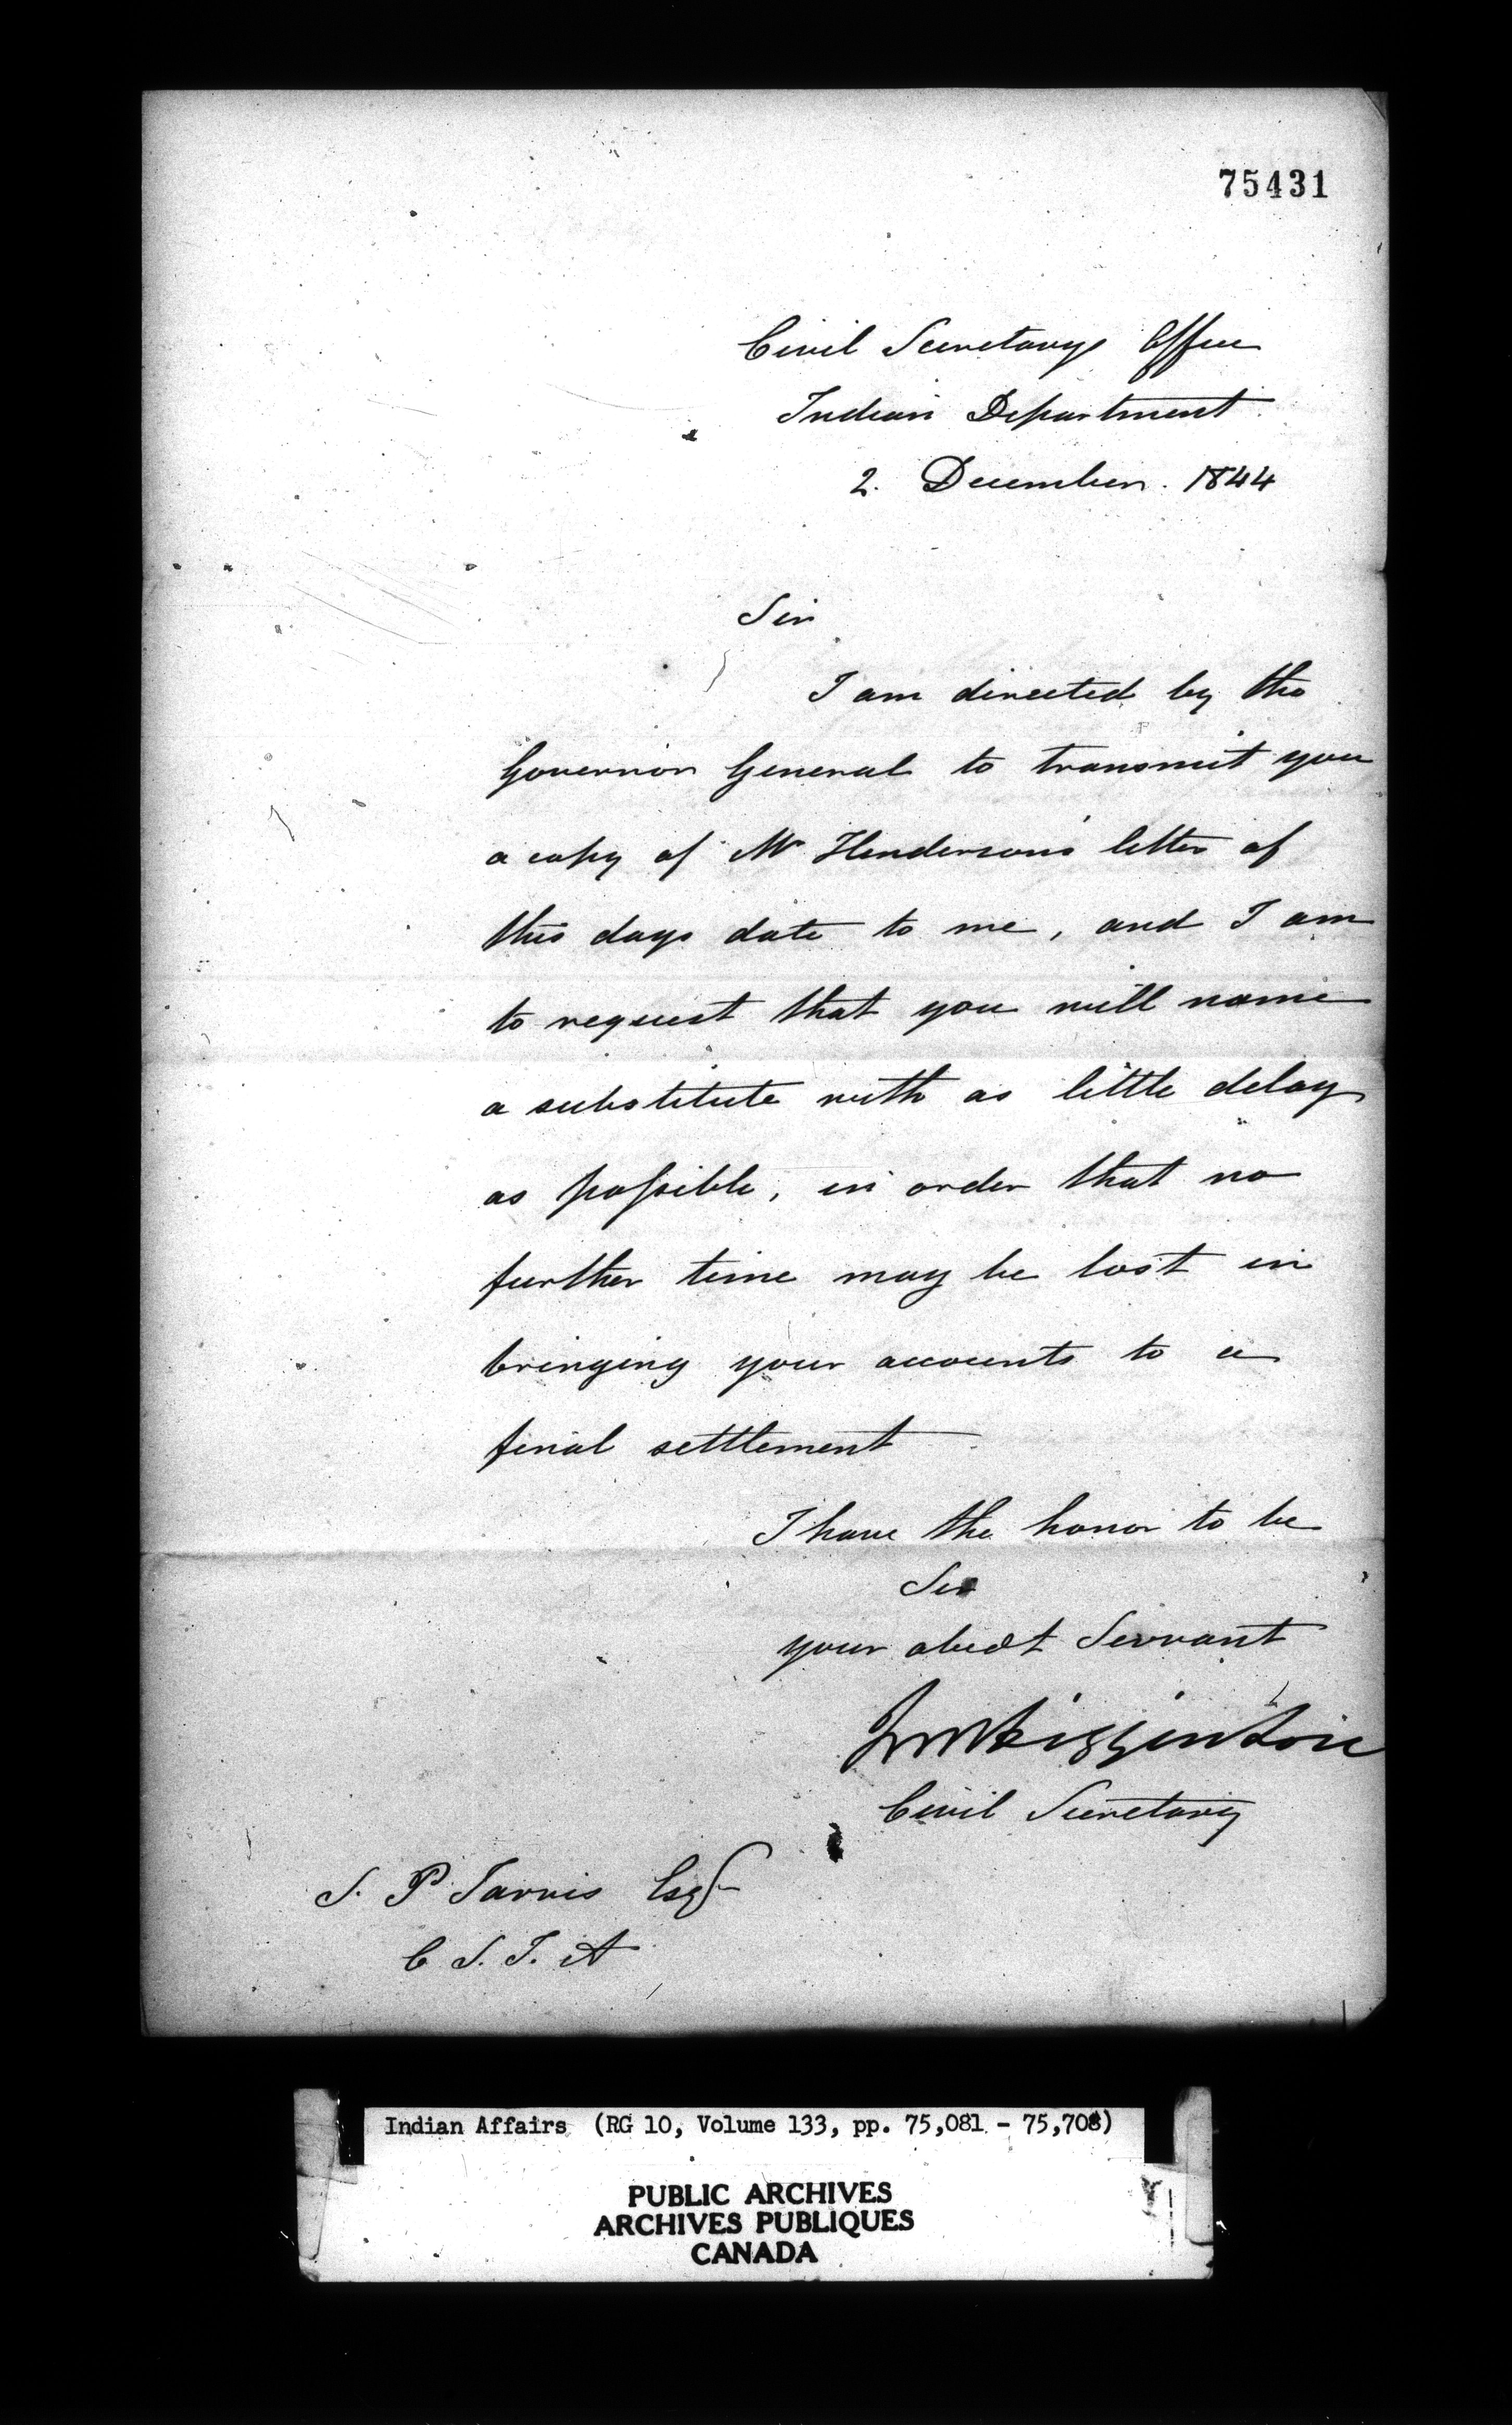 75431
Civil Secretarys Office
Indian Department.
2. December. 1844
Sir
I am directed by the
Governor General to transmit you
a copy of Mr Henderson's letter of
this days date to me, and I am
to request that you will name
a substitute with as little delay
as possible, in order that no
further time may be lost in
bringing your accounts to a
final settlement
I have the honor to be
Sir
your obedt Servant
JM Higginson
Civil Secretary
S. P Jarvis Esqr
C S. I. A
Indian Affairs (RG 10, Volume 133, pp. 75,081 - 75,708)
PUBLIC ARCHIVES
ARCHIVES PUBLIQUES
CANADA